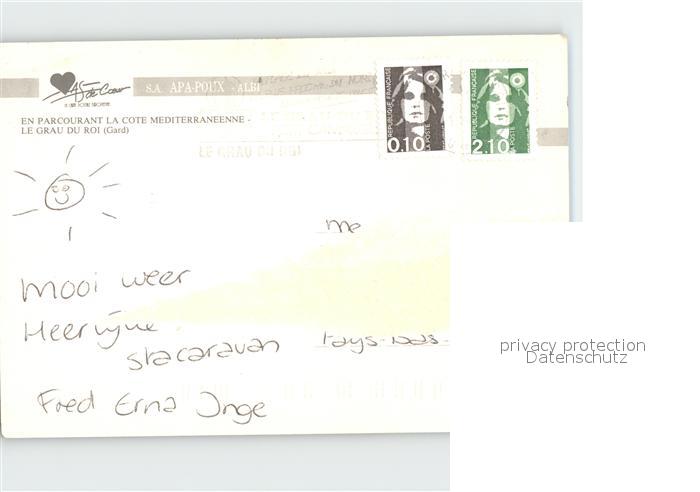 As de Cœur
S.A. APA-POUX - ALBI
EN PARCOURANT LA COTE MEDITERRANEENNE -
LE GRAU DU ROI (Gard)
LE GRAU DU ROI
REPUBLIQUE FRANÇAISE
0,10
LA POSTE
REPUBLIQUE FRANÇAISE
2,10
LA POSTE
me
Mooi weer
Heerlijke
stacaravan
Pays-Bas-
Fred Erna Inge
privacy protection
Datenschutz